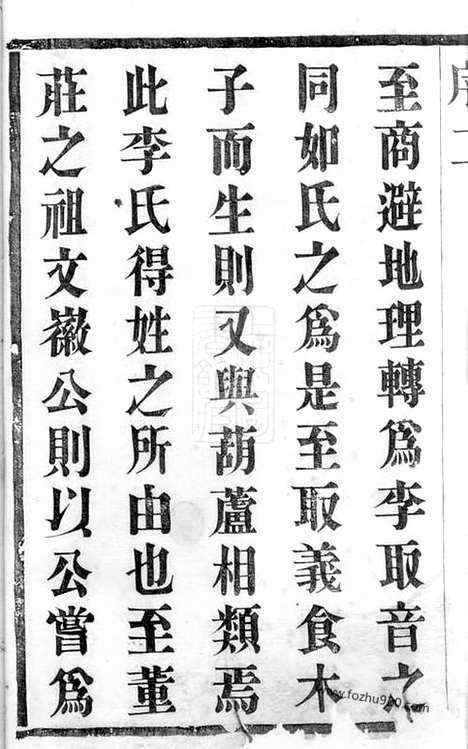 序二
至商避地理轉爲李取音之
同如氏之爲是至取義食木
子而生則又與葫蘆相類焉
此李氏得姓之所由也至董
莊之祖文徽公則以公嘗爲
www.fozhu920.com